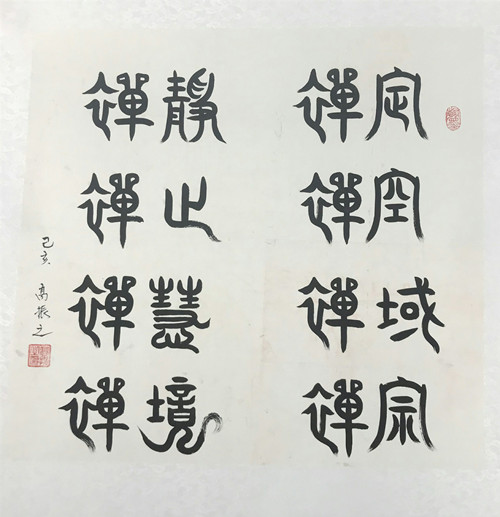 禪定
禪空
禪域
禪宗
禪靜
禪止
禪慧
禪境
己亥 高振之